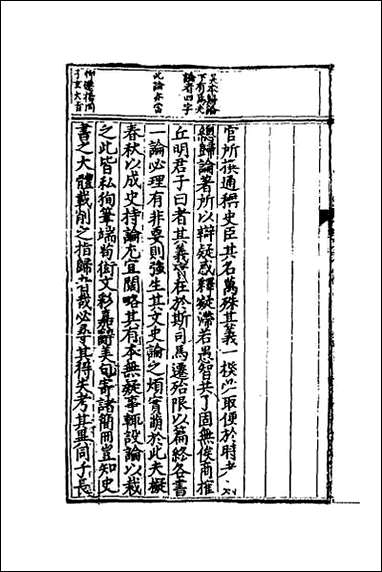 吳本歸論
下有焉夫
論者四字
此論亦當
子玄大旨
官所撰通稱史臣其名萬殊其義一揆必取便於時者則
總歸論著所以辯疑惑釋疑滯若愚智共了固無俟商榷
丘明君子曰者其義實在於斯司馬遷始限以篇終各書
一論必理有非要則強生其文史論之煩實萌於此夫擬
春秋以成史持論尤宜闊略其有本無疑事輒設論以裁
之此皆私徇筆端苟衒文彩嘉辭美句寄諸簡冊豈知史
書之大體載削之指歸者哉必尋其得失考其異同子長